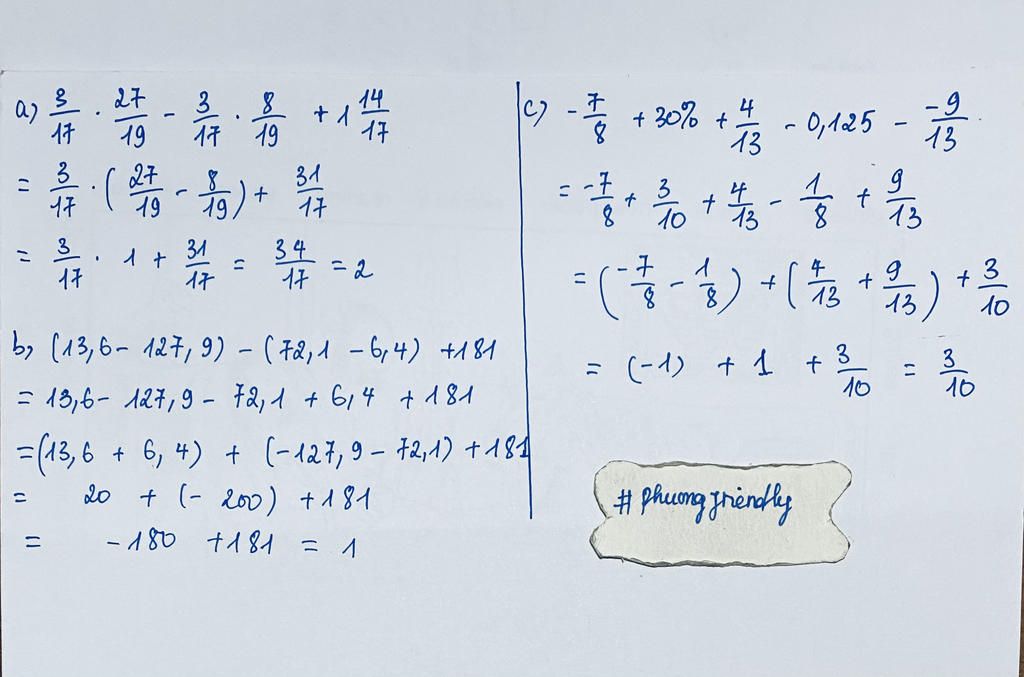 a) 3/17 . 27/19 - 3/17 . 8/19 + 1 14/17
= 3/17 . (27/19 - 8/19) + 31/17
= 3/17 . 1 + 31/17 = 34/17 = 2
b) (13,6 - 127,9) - (72,1 - 6,4) + 181
= 13,6 - 127,9 - 72,1 + 6,4 + 181
= (13,6 + 6,4) + (-127,9 - 72,1) + 181
= 20 + (- 200) + 181
= -180 + 181 = 1
c) -7/8 + 30% + 4/13 - 0,125 - -9/13
= -7/8 + 3/10 + 4/13 - 1/8 + 9/13
= (-7/8 - 1/8) + (4/13 + 9/13) + 3/10
= (-1) + 1 + 3/10 = 3/10
# phuongfriendly